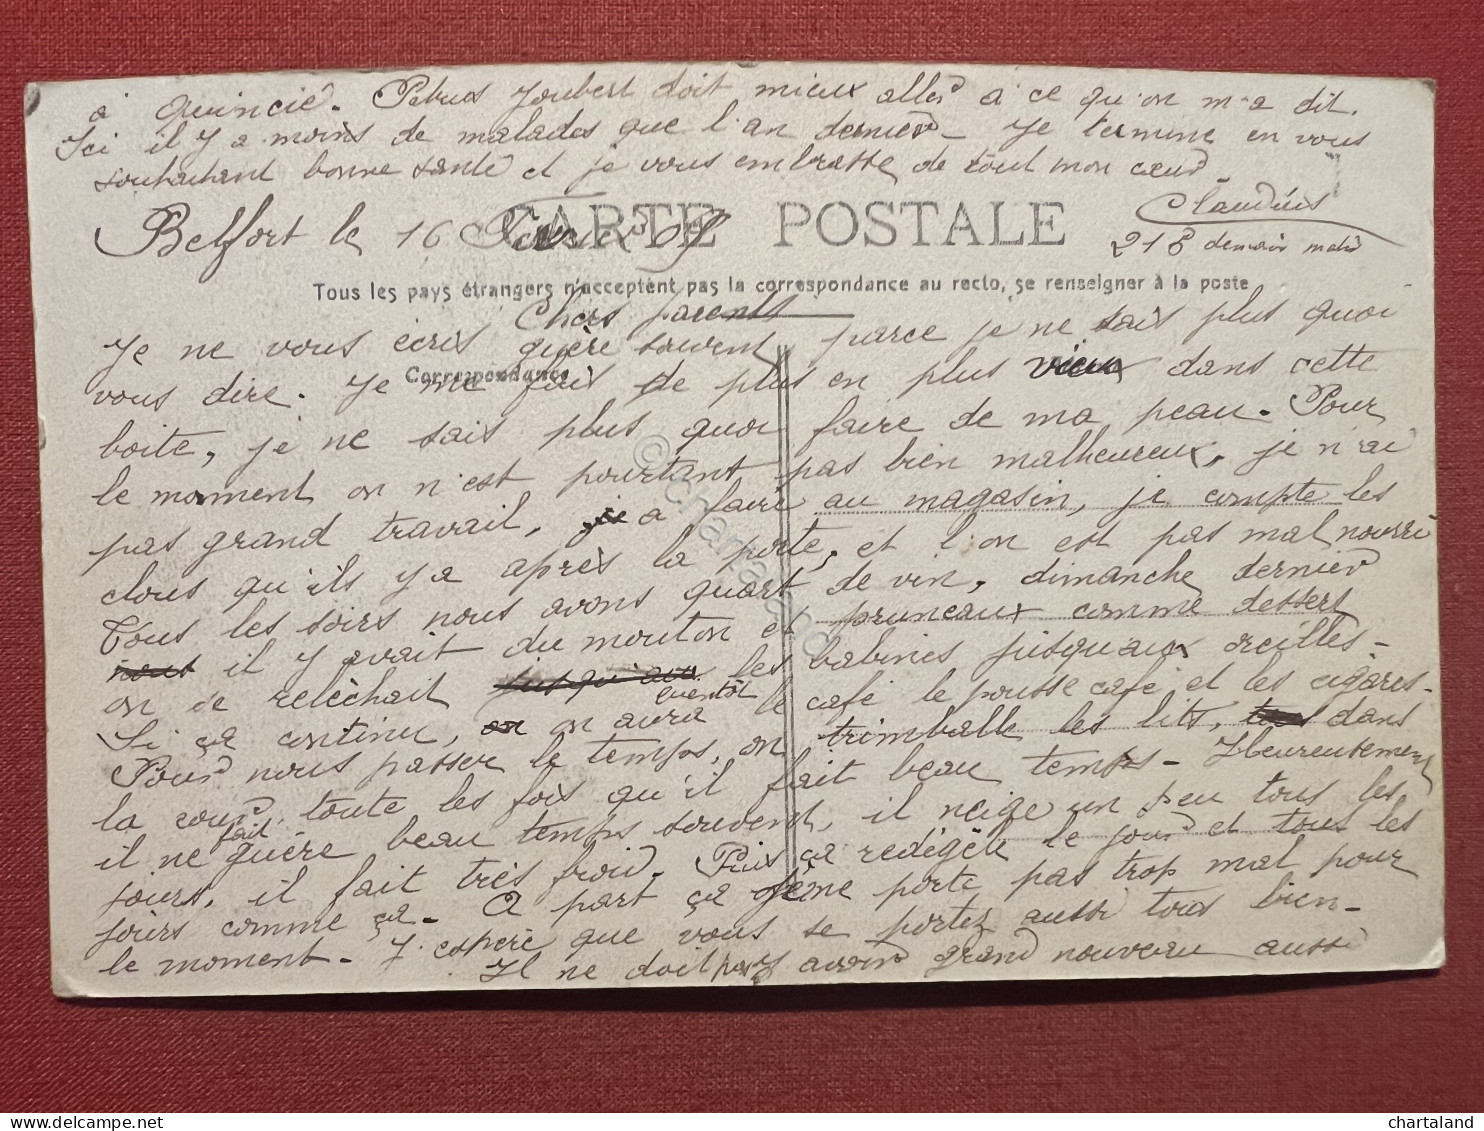 à Quincié. Petrus Joubert doit mieux aller à ce qu'on m'a dit.
Ici il y a moins de malades que l'an dernier. Je termine en vous
souhaitant bonne santé et je vous embrasse de tout mon cœur.
Claudius
218 demain matin
Belfort le 16 Février 09
CARTE POSTALE
Tous les pays étrangers n'acceptent pas la correspondance au recto, se renseigner à la poste
Chers parents
Correspondance
Je ne vous écris guère souvent parce je ne sais plus quoi
vous dire. Je me fais de plus en plus vieux dans cette
boite, je ne sais plus quoi faire de ma peau. Pour
le moment on n'est pourtant pas bien malheureux, je n'ai
pas grand travail, à faire au magasin, je compte les
clous qu'ils y a après la porte, et l'on est pas mal nourri
Tous les soirs nous avons quart de vin, dimanche dernier
il y avait du mouton et pruneaux comme dessert
on se relèchait les babines jusquaux oreilles-
Si ça continu, on aura bientôt le café le pousse café et les cigares-
Pour nous passer le temps, on trimballe les lits, dans
la cour, toute les fois qu'il fait beau temps- Heureusement
il ne fait guère beau temps souvent, il neige un peu tous les
jours, il fait très froid. Puis ça redégèle le jour et tous les
jours comme ça- A part ça je me porte pas trop mal pour
le moment- J'espère que vous se portez aussi tous bien-
Il ne doit pas y avoir grand nouveau aussi
© chartaland
chartaland